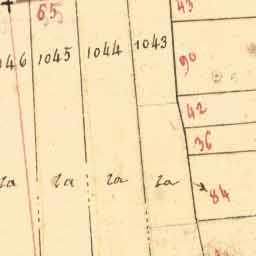 65
43
1045 1044 1043
90
42
36
la la la la
84